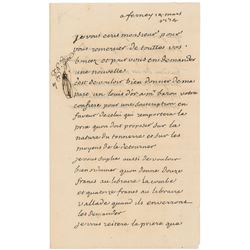 a ferney 14 mars
1774
je vous ecris monsieur pour
vous remercier de touttes vos
bontez et pour vous en demander
une nouvelle
c'est de vouloir bien donner de ma
part un louis d'or a mr baron votre
confrere pour une souscription en
faveur de celui qui remportera le
prix qu'on doit proposer sur la
nature du tonnerre et sur les
moyens de le detourner
je vous suplie aussi de vouloir
bien ordonner qu'on donne douze
francs au libraire la combe
et quatorze francs au libraire
vallade quand ils enverront
les demander
je vous reitere la priere que